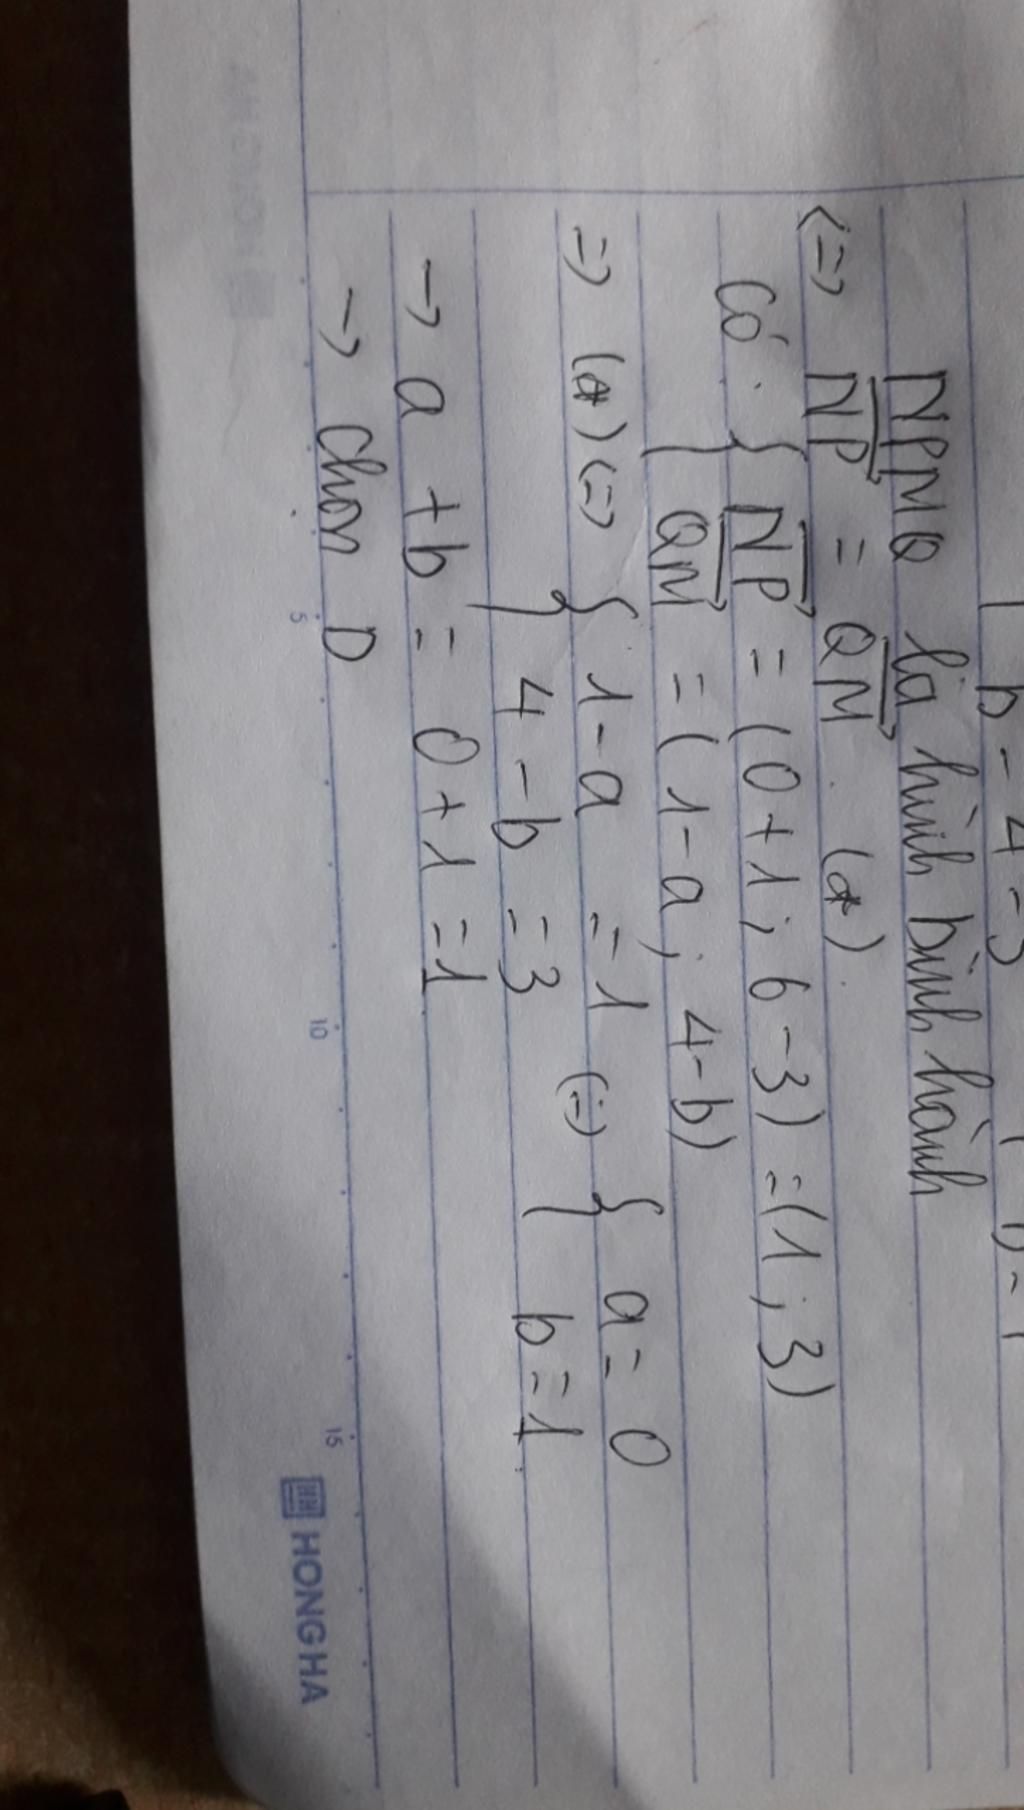 b - 4 = 3
NPMQ là hình bình hành
<=> NP = QM (*).
Có: { NP = (0+1; 6-3) = (1; 3)
QM = (1-a; 4-b)
=> (*) <=> { 1-a = 1 <=> { a = 0
4-b = 3 b = 1.
-> a + b = 0 + 1 = 1
-> Chọn D
5 10 15
HONG HA